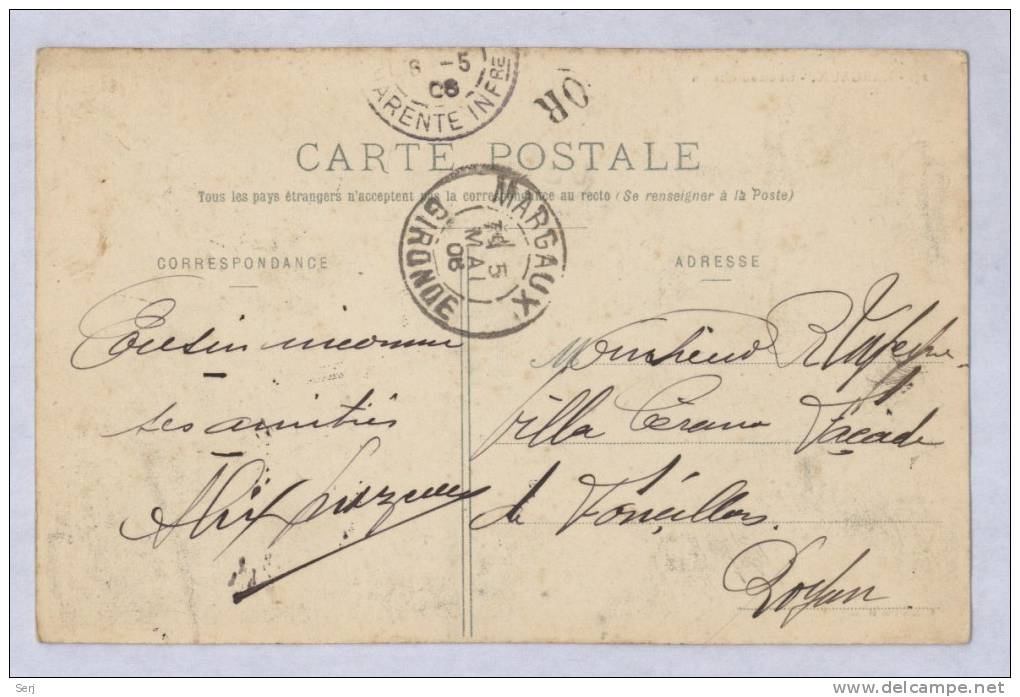 6 -5
06
ARENTE INFRE
OR
CARTE POSTALE
Tous les pays étrangers n'acceptent pas la correspondance au recto (Se renseigner à la Poste)
MARGAUX
5
MAI
06
GIRONDE
CORRESPONDANCE
ADRESSE
Cousin inconnu
ses amitiés
Alix
Monsieur R
villa Façade
de Foncillon
Royan
Serj
www.delcampe.net